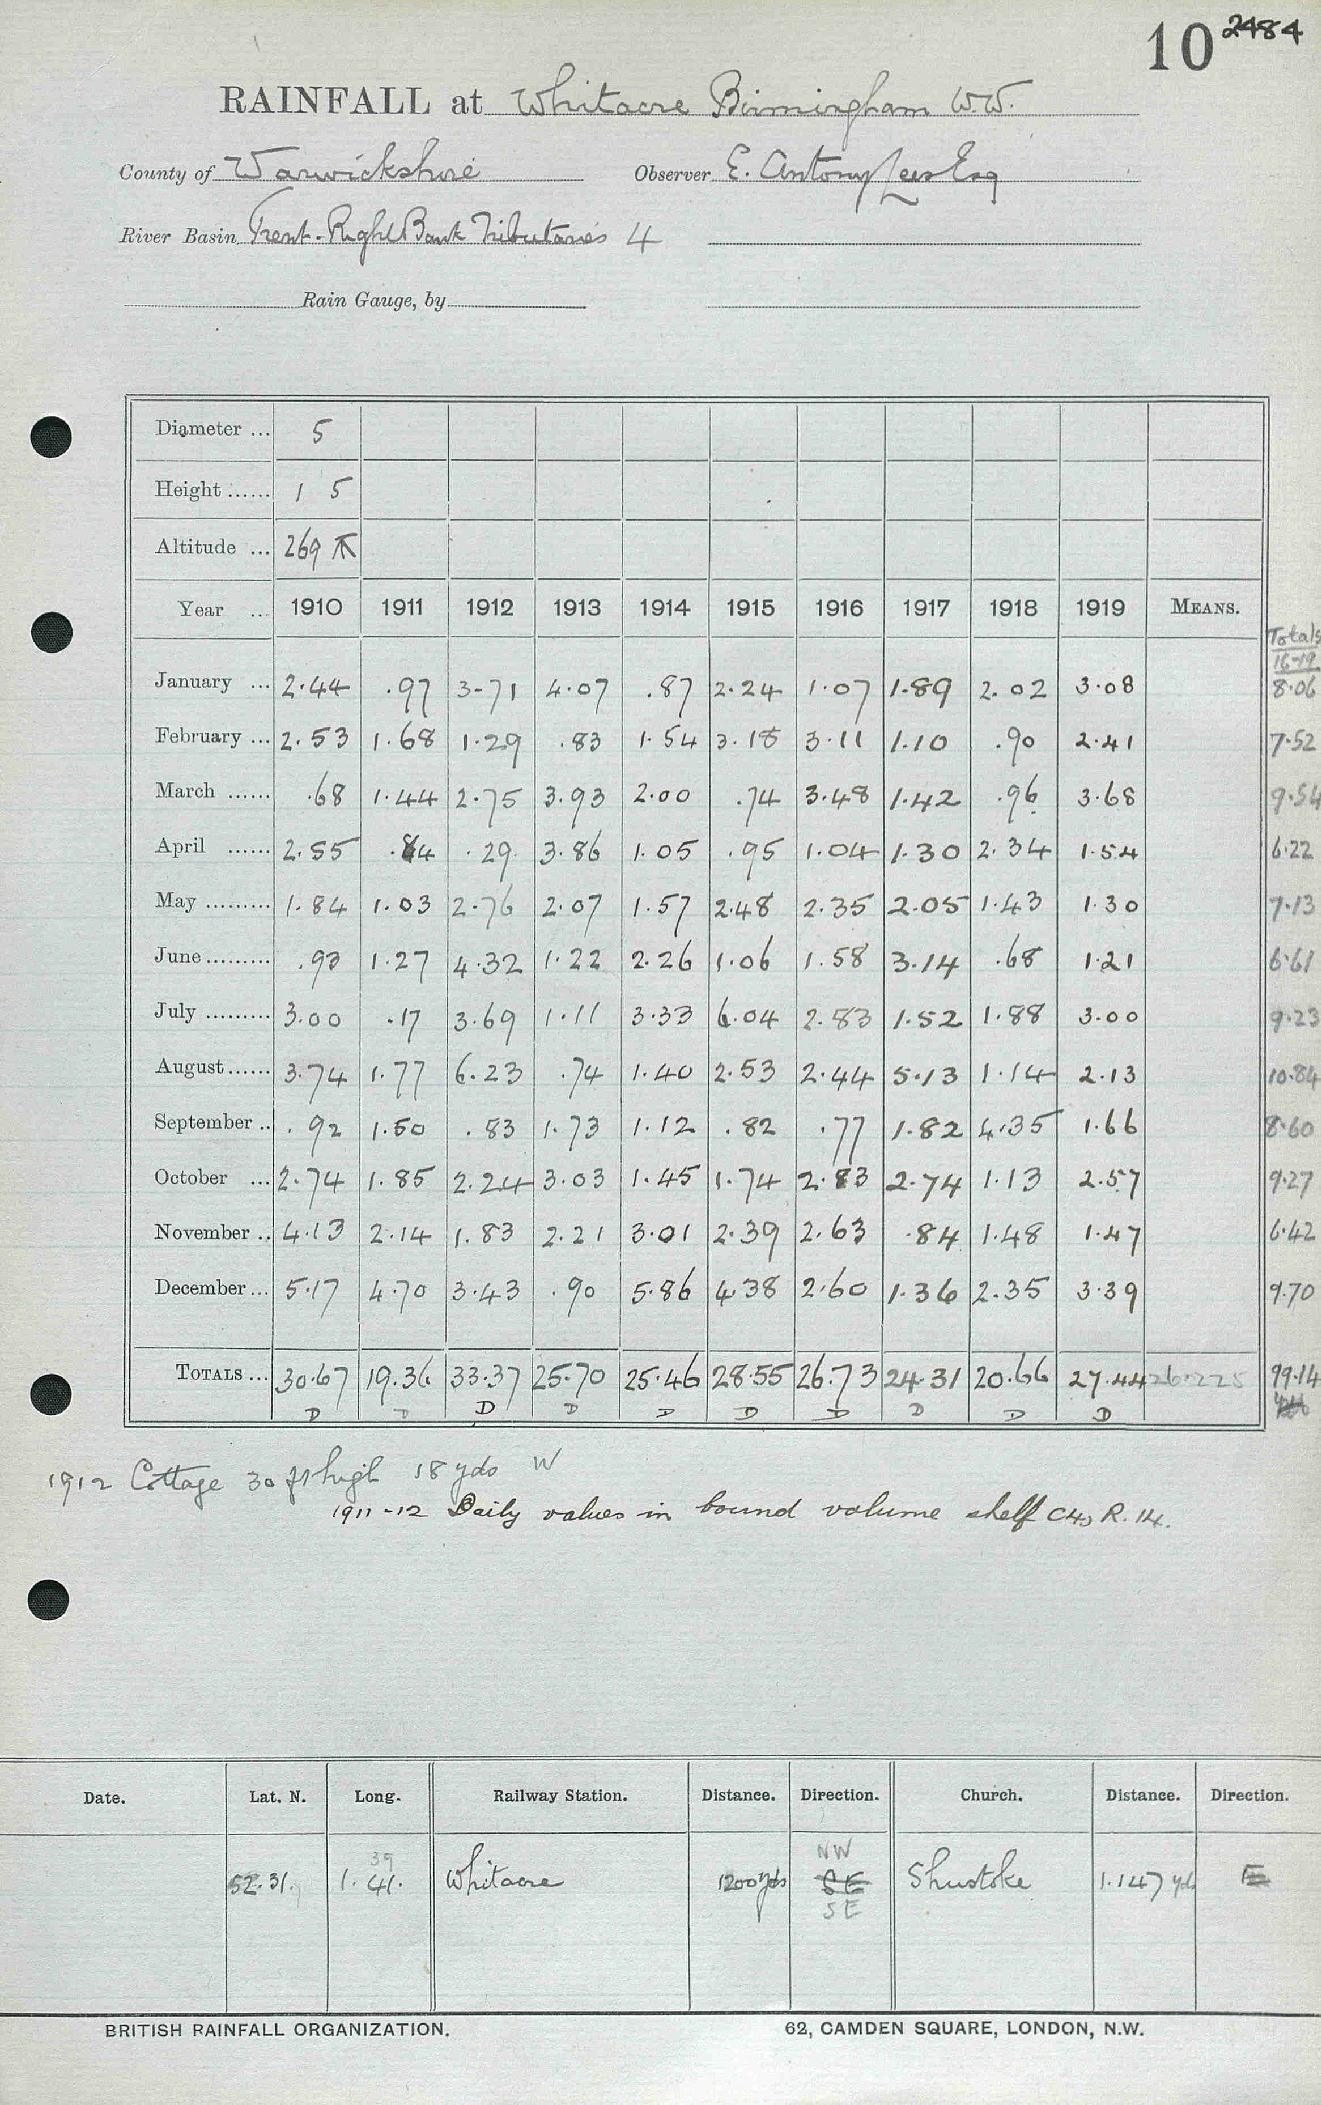 10 2484
RAINFALL at Whitacre Birmingham W.W.
County of Warwickshire Observer E. Antony Lees Esq
River Basin Trent. Right Bank Tributaries 4
Rain Gauge, by
Diameter ... 5
Height ...... 1 5
Altitude ... 269
Year ... 1910 1911 1912 1913 1914 1915 1916 1917 1918 1919 MEANS. Totals
16-19
January ... 2.44 .97 3-71 4.07 .87 2.24 1.07 1.89 2.02 3.08 8.06
February ... 2.53 1.68 1.29 .83 1.54 3.18 3.11 1.10 .90 2.41 7.52
March ...... .68 1.44 2.75 3.93 2.00 .74 3.48 1.42 .96 3.68 9.54
April ...... 2.55 .84 .29 3.86 1.05 .95 1.04 1.30 2.34 1.54 6.22
May ......... 1.84 1.03 2.76 2.07 1.57 2.48 2.35 2.05 1.43 1.30 7.13
June ......... .93 1.27 4.32 1.22 2.26 1.06 1.58 3.14 .68 1.21 6.61
July ......... 3.00 .17 3.69 1.11 3.33 6.04 2.83 1.52 1.88 3.00 9.23
August ...... 3.74 1.77 6.23 .74 1.40 2.53 2.44 5.13 1.14 2.13 10.84
September .. .92 1.50 .83 1.73 1.12 .82 .77 1.82 4.35 1.66 8.60
October ... 2.74 1.85 2.24 3.03 1.45 1.74 2.83 2.74 1.13 2.57 9.27
November .. 4.13 2.14 1.83 2.21 3.01 2.39 2.63 .84 1.48 1.47 6.42
December ... 5.17 4.70 3.43 .90 5.86 4.38 2.60 1.36 2.35 3.39 9.70
TOTALS ... 30.67 19.36 33.37 25.70 25.46 28.55 26.73 24.31 20.66 27.44 26.225 99.14
D D D D D D D D D D
1912 Cottage 30 ft high 18 yds W
1911-12 Daily values in bound volume shelf C43 R. 14.
Date. Lat. N. Long. Railway Station. Distance. Direction. Church. Distance. Direction.
39 NW
52.31. 1.41. Whitacre 1200 yds SE Shustoke 1.147 yds E
SE
BRITISH RAINFALL ORGANIZATION. 62, CAMDEN SQUARE, LONDON, N.W.